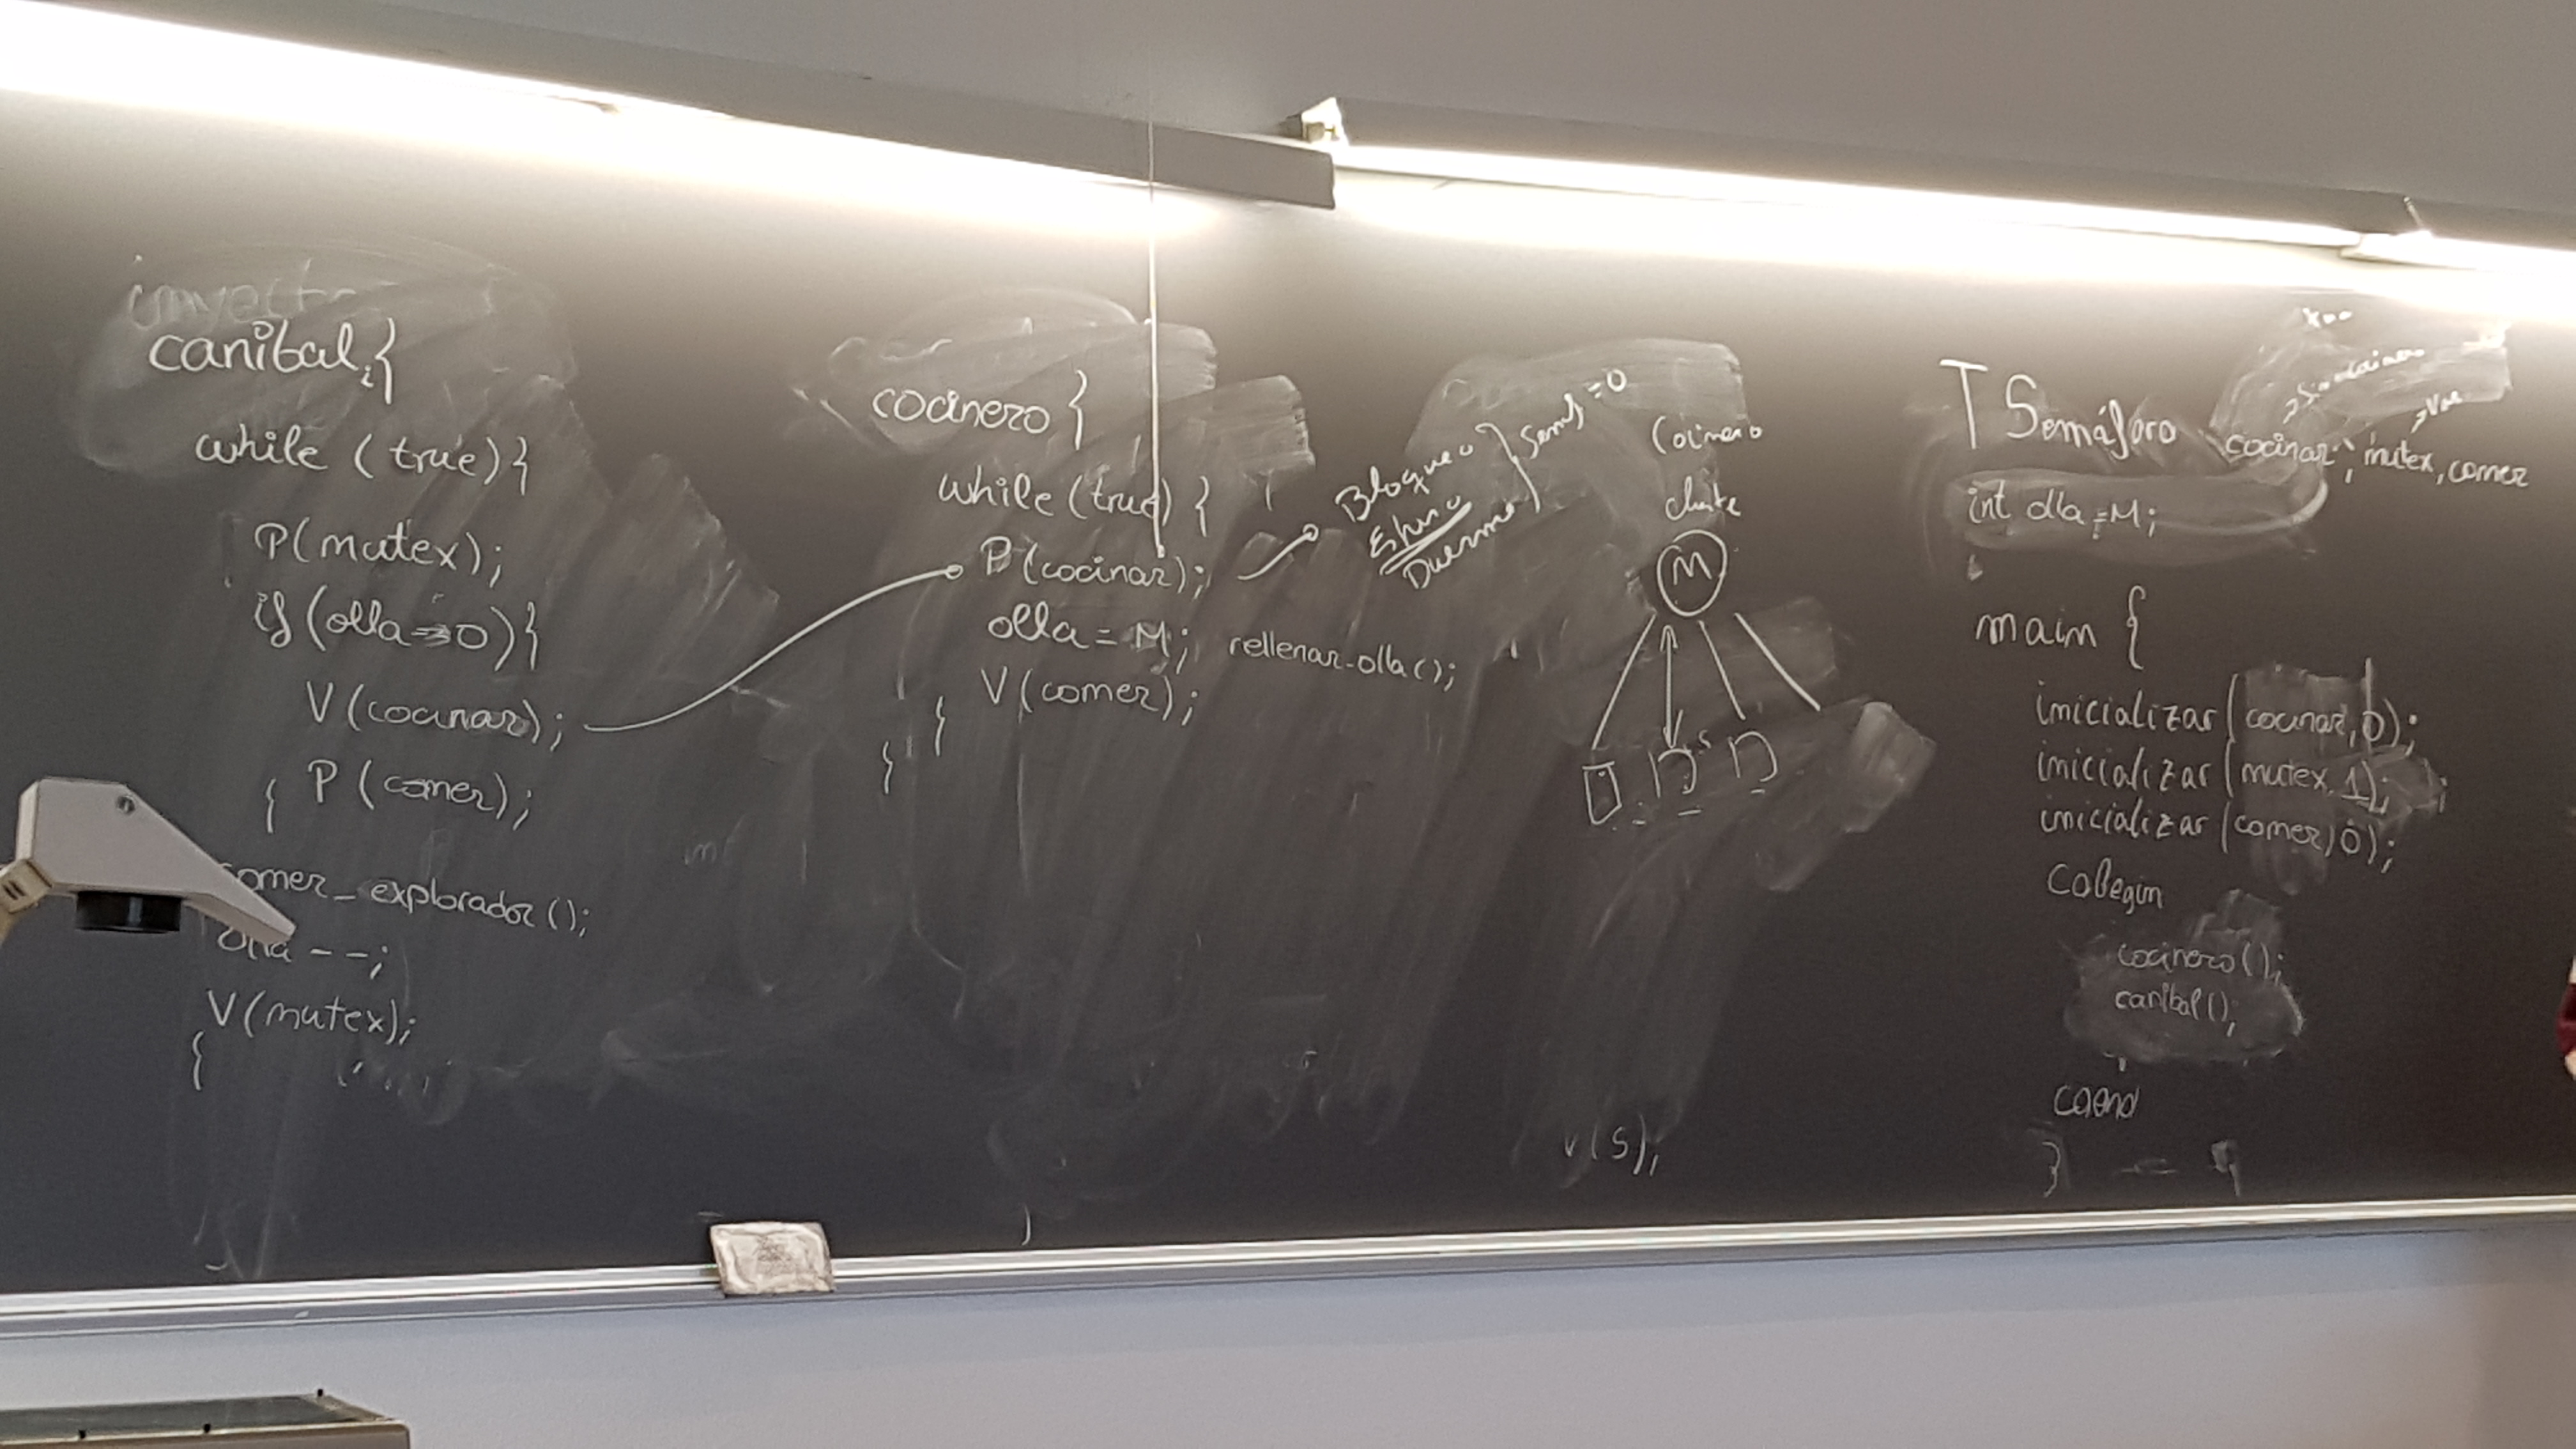 canibal i {
while (true) {
P(mutex);
if (olla == 0) {
V(cocinar);
P(comer);
}
comer_explorador();
olla --;
V(mutex);
}
cocinero {
while (true) {
P(cocinar);
olla = M; rellenar_olla();
V(comer);
}
}
Bloqueo
Duerme
=0
Cocinero
M
V(S);
TSemáforo cocinar, mutex, comer
int olla = M;
main {
inicializar(cocinar,0);
inicializar(mutex,1);
inicializar(comer,0);
cobegin
cocinero();
canibal();
coend
}